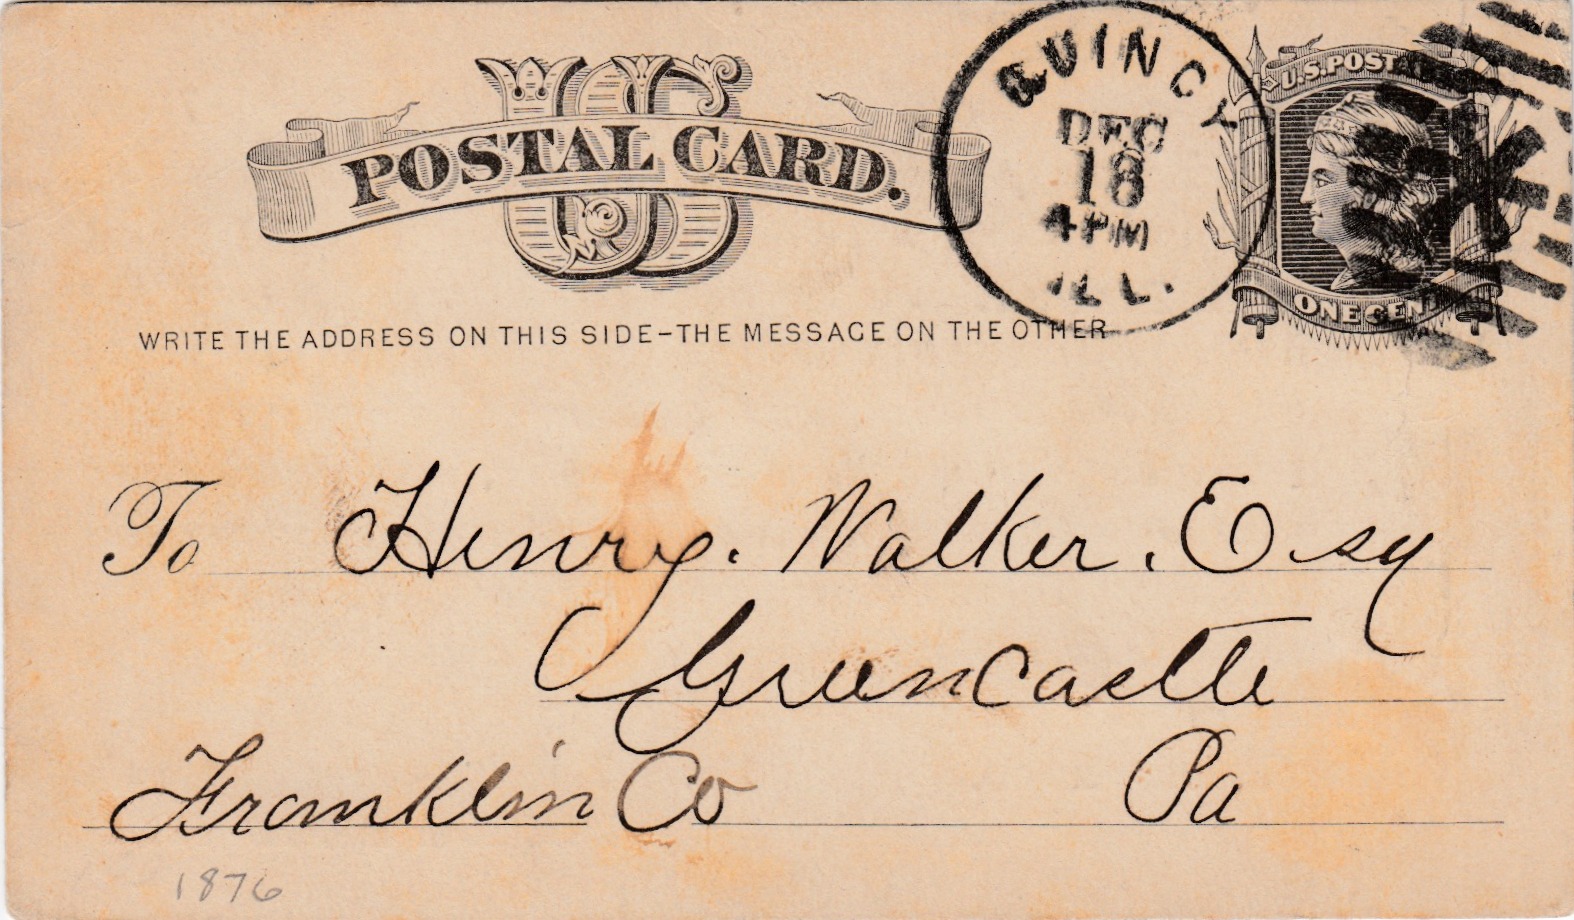 US
POSTAL CARD.
QUINCY
DEC
18
4 PM
ILL.
U.S. POSTAGE
ONE CENT
WRITE THE ADDRESS ON THIS SIDE-THE MESSAGE ON THE OTHER
To Henry. Walker. Esq
Greencastle
Franklin Co Pa
1876